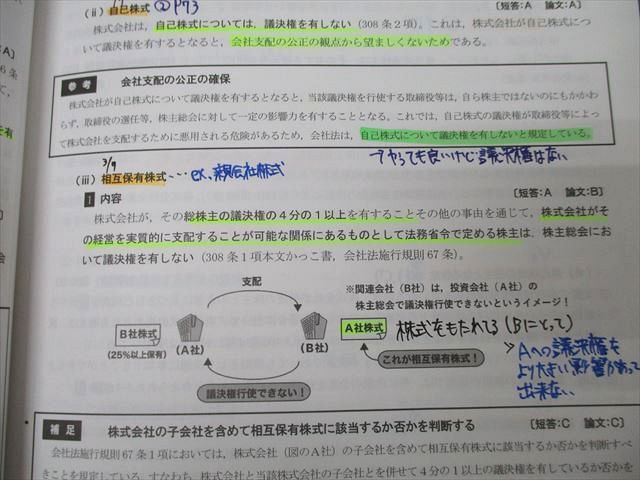 (ⅱ) 自己株式 ② P73 〔短答：A 論文：A〕
株式会社は，自己株式については，議決権を有しない（308条2項）。これは，株式会社が自己株式につ
いて議決権を有するとなると，会社支配の公正の観点から望ましくないためである。
参考 会社支配の公正の確保
株式会社が自己株式について議決権を有するとなると，当該議決権を行使する取締役等は，自ら株主ではないのにもかかわ
らず，取締役の選任等，株主総会に対して一定の影響力を有することとなる。これでは，自己株式の議決権が取締役等によっ
て株式会社を支配するために悪用される危険があるため，会社法は，自己株式について議決権を有しないと規定している。
→やっても良いけど議決権はない
3/9
(ⅲ) 相互保有株式… ex,親会社株式
1 内容 〔短答：A 論文：B〕
株式会社が，その総株主の議決権の4分の1以上を有することその他の事由を通じて，株式会社がそ
の経営を実質的に支配することが可能な関係にあるものとして法務省令で定める株主は，株主総会にお
いて議決権を有しない（308条1項本文かっこ書，会社法施行規則67条）。
支配
※関連会社（B社）は，投資会社（A社）の
株主総会で議決権行使できないというイメージ！
B社株式
(25%以上保有)
(A社)
(B社)
A社株式
株式をもたれてる(Bにとって)
これが相互保有株式！
議決権行使できない！
Aへの議決権を
より大きい影響があって
出来ない
補足 株式会社の子会社を含めて相互保有株式に該当するか否かを判断する 〔短答：C 論文：C〕
会社法施行規則67条1項においては，株式会社（図のA社）の子会社を含めて相互保有株式に該当するか否かを判断すべ
きことを規定している。すなわち，株式会社と当該株式会社の子会社とを併せて4分の1以上の議決権を有しているか否かを